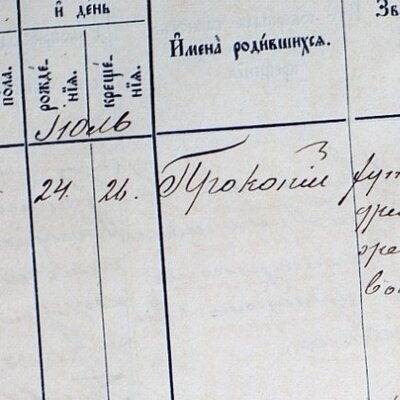 и день
Зв
Имена родившихся.
пола.
рожде-
нія.
креще-
нія.
Іюль
24.
26.
Прокопій